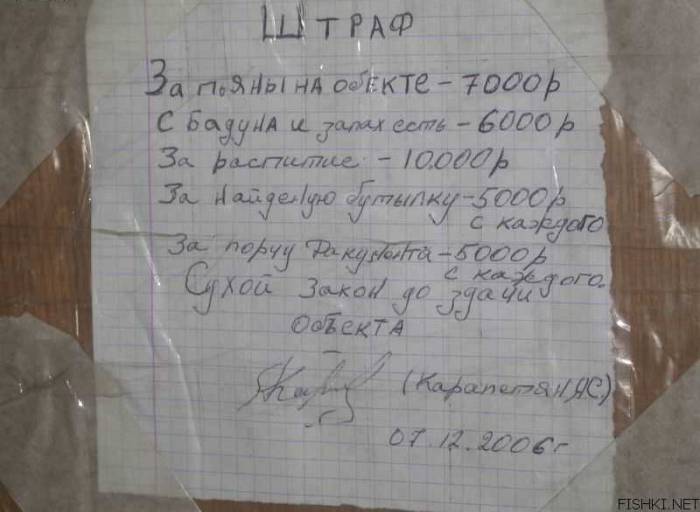 ШТРАФ
За пьяны на обекте – 7000р
С бадуна и запах есть – 6000р
За распитие – 10.000р
За найденую бутылку – 5000р
с каждого
За порчу Дакумента – 5000р
с каждого.
Сухой закон до здачи
объекта
(Карапетян АС)
07.12.2006г
FISHKI.NET